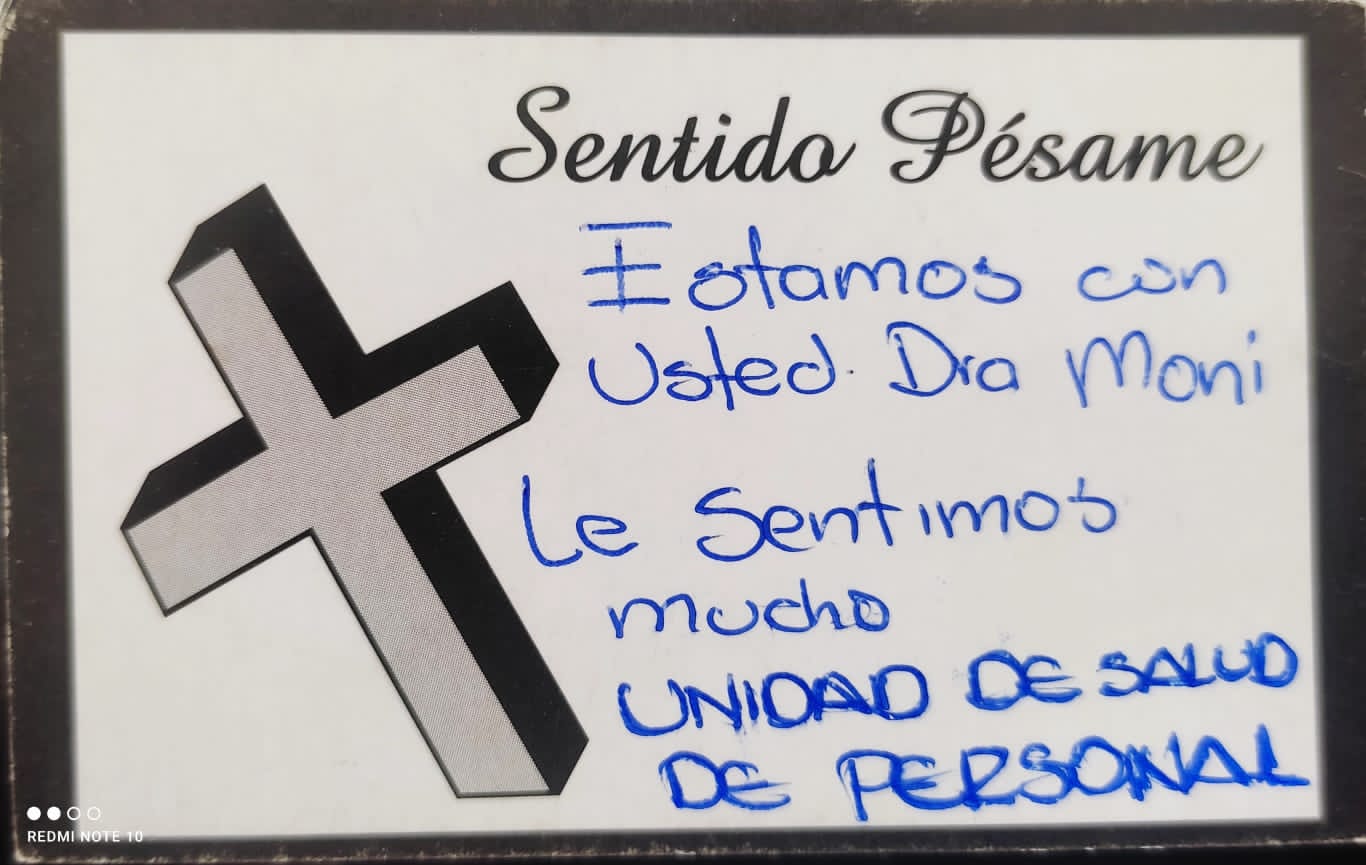 Sentido Pésame
Estamos con
Usted. Dra Moni
Le Sentimos
mucho
UNIDAD DE SALUD
DE PERSONAL
REDMI NOTE 10